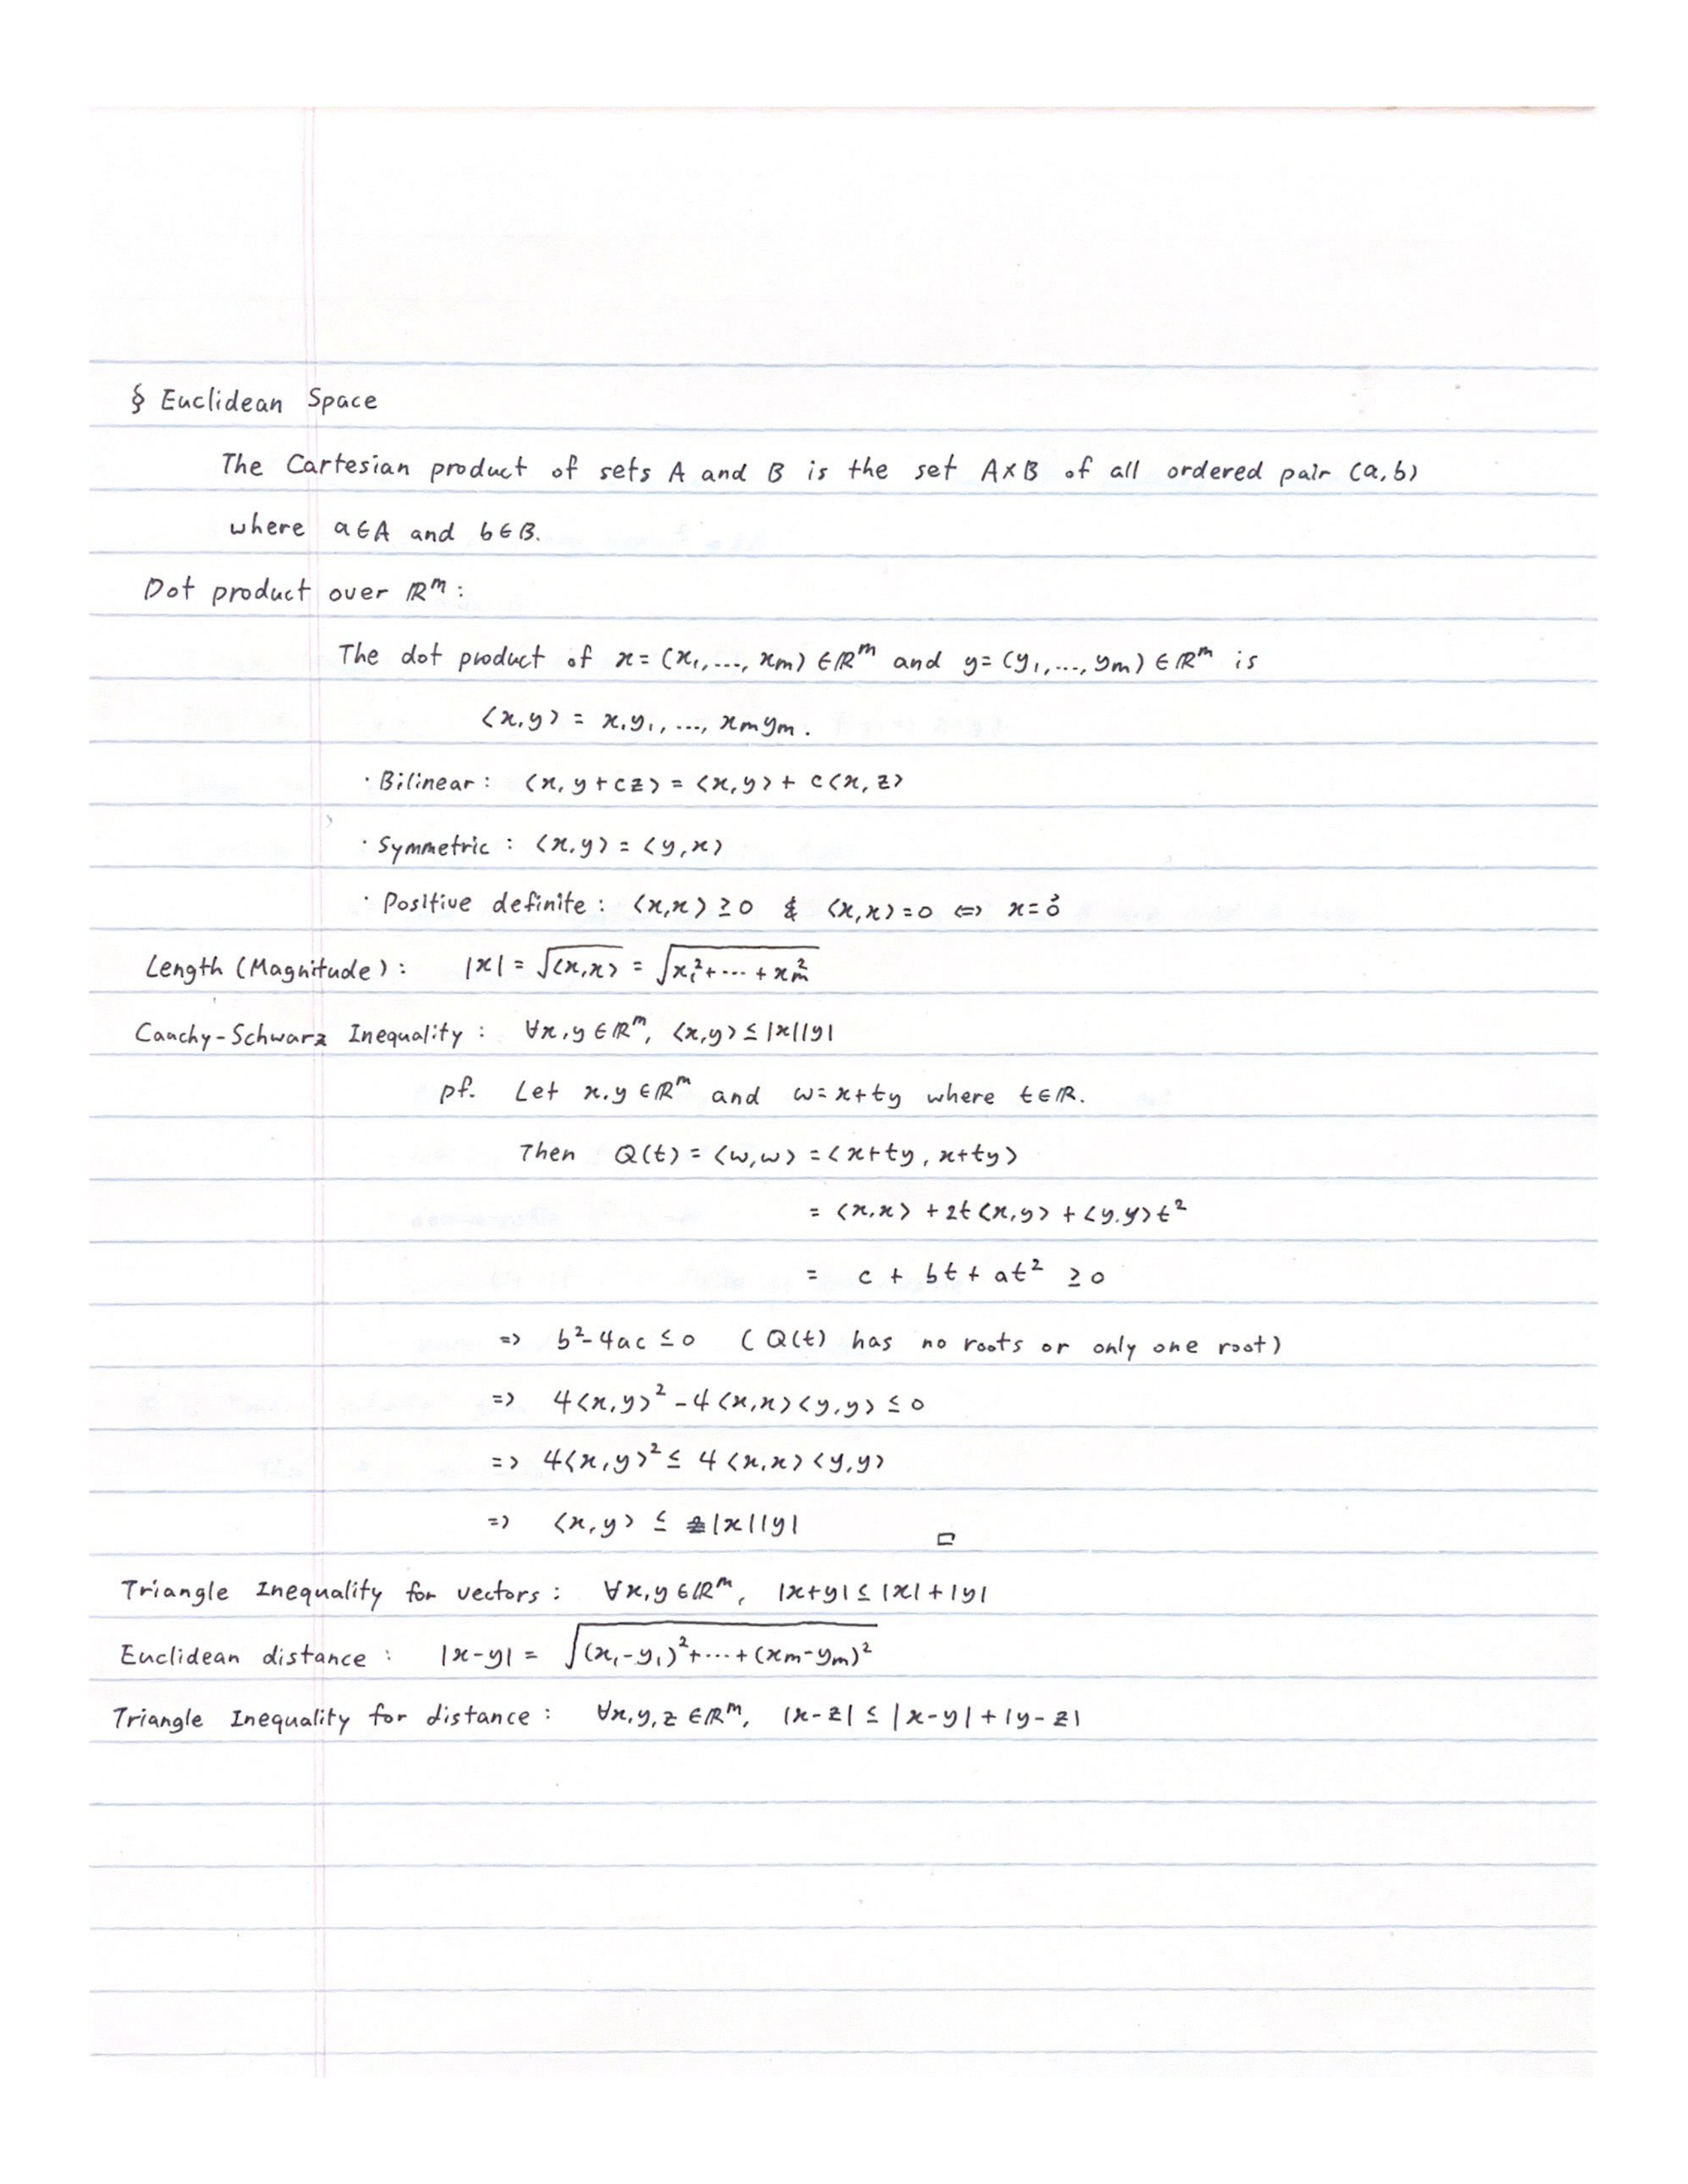 § Euclidean Space
The Cartesian product of sets A and B is the set A×B of all ordered pair (a,b)
where a∈A and b∈B.
Dot product over ℝᵐ:
The dot product of x=(x₁,...,xₘ)∈ℝᵐ and y=(y₁,...,yₘ)∈ℝᵐ is
⟨x,y⟩ = x₁y₁,...,xₘyₘ.
· Bilinear: ⟨x, y+cz⟩ = ⟨x,y⟩ + c⟨x,z⟩
· Symmetric: ⟨x,y⟩ = ⟨y,x⟩
· Positive definite: ⟨x,x⟩ ≥ 0 & ⟨x,x⟩ = 0 ⟺ x = 0⃗
Length (Magnitude): |x| = √⟨x,x⟩ = √(x₁²+⋯+xₘ²)
Cauchy-Schwarz Inequality: ∀x,y∈ℝᵐ, ⟨x,y⟩ ≤ |x||y|
pf. Let x,y∈ℝᵐ and w=x+ty where t∈ℝ.
Then Q(t) = ⟨w,w⟩ = ⟨x+ty, x+ty⟩
= ⟨x,x⟩ + 2t⟨x,y⟩ + ⟨y,y⟩t²
= c + bt + at² ≥ 0
⇒ b²-4ac ≤ 0 (Q(t) has no roots or only one root)
⇒ 4⟨x,y⟩² - 4⟨x,x⟩⟨y,y⟩ ≤ 0
⇒ 4⟨x,y⟩² ≤ 4⟨x,x⟩⟨y,y⟩
⇒ ⟨x,y⟩ ≤ |x||y| □
Triangle Inequality for vectors: ∀x,y∈ℝᵐ, |x+y| ≤ |x|+|y|
Euclidean distance: |x-y| = √((x₁-y₁)²+⋯+(xₘ-yₘ)²)
Triangle Inequality for distance: ∀x,y,z∈ℝᵐ, |x-z| ≤ |x-y|+|y-z|